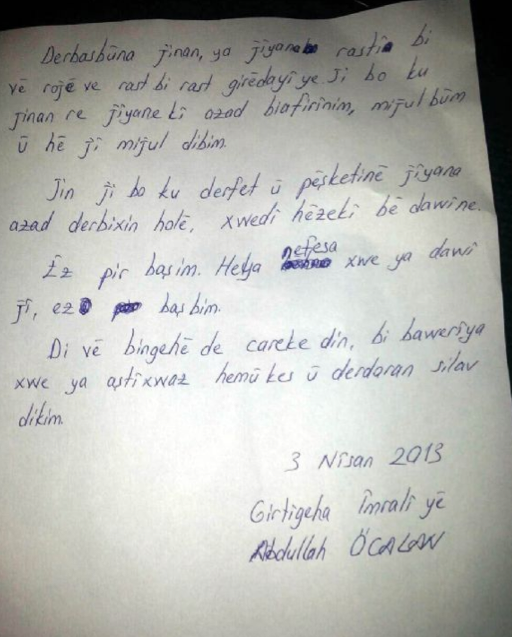 Derbasbûna jinan, ya jîyana rastîn bi
vê rojê ve rast bi rast girêdayî ye Ji bo ku
jinan re jîyane kî azad biafirînim, mijulbûm
û hê jî mijul dibim.
Jin ji bo ku derfet û pêşketinê jîyana
azad derbixin holê, xwedî hêzekî bê dawîne.
Ez pir başim. Helja nefesa xwe ya dawî
jî, ez baş bim.
Di vê bingehê de careke din, bi bawerîya
xwe ya aştîxwaz hemû kes û derdoran silav
dikim.
3 Nîsan 2013
Girtigeha Îmrali yê
Abdullah ÖCALAN